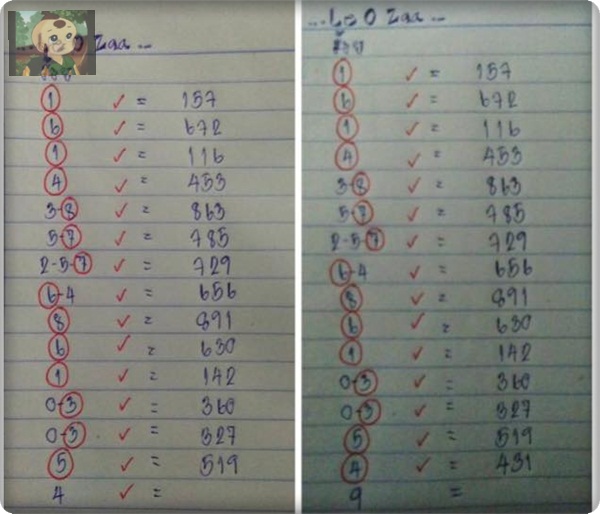 0 Zaa ...
1 ✓ = 157
6 ✓ = 672
1 ✓ = 116
4 ✓ = 453
3-8 ✓ = 863
5-7 ✓ = 785
2-5-7 ✓ = 729
6-4 ✓ = 656
8 ✓ = 891
6 ✓ = 630
1 ✓ = 142
0-3 ✓ = 360
0-3 ✓ = 327
5 ✓ = 519
4 ✓ =
...L=0 Zaa ...
1 ✓ = 157
6 ✓ = 672
1 ✓ = 116
4 ✓ = 453
3-8 ✓ = 863
5-7 ✓ = 785
2-5-7 ✓ = 729
6-4 ✓ = 656
8 ✓ = 891
6 ✓ = 630
1 ✓ = 142
0-3 ✓ = 360
0-3 ✓ = 327
5 ✓ = 519
4 ✓ = 431
9 =